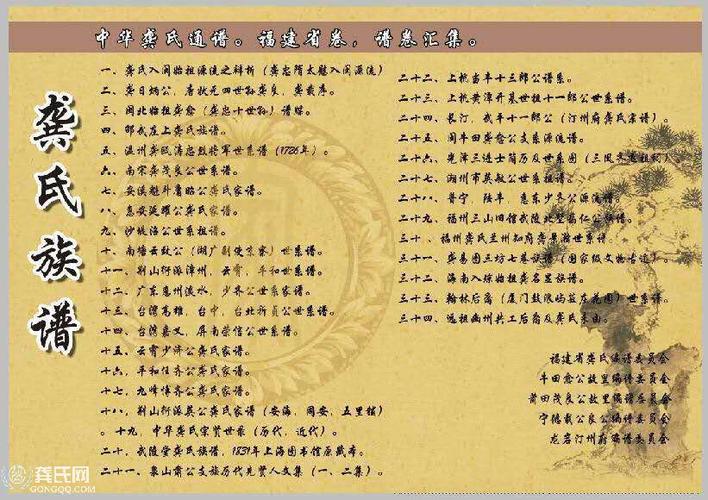 中华龚氏通谱。福建省卷，谱卷汇集。
龚氏族谱
一、龚氏入闽始祖源流之辩析（龚忠隋太尉入闽源流）
二、龚日炳公，唐状元四世孙龚良，龚戴序。
三、闽北始祖龚愈（龚忠十世孙）谱牒。
四、邵武庄上龚氏族谱。
五、温州龚氏涛忠毅将军世系谱（1726年）。
六、南宋龚茂良公世系谱。
七、安溪魁斗眉脂公龚氏家谱。
八、惠安涎耀公龚氏家谱。
九、沙
公世系祖谱。
十、南塘云致公（湖广副使宗
）世系谱。
十一、荆山衍派漳州，云霄，平和世系谱。
十二、广东惠州淡水，少齐公世系家谱。
十三、台湾高雄，台中，台北折员公世系谱。
十四、台湾嘉义，屏南荣信公世系谱。
十五、云霄少济公龚氏家谱。
十六、平和住齐公龚氏家谱。
十七、九峰博齐公龚氏家谱。
十八、荆山衍派英公龚氏家谱（安海，同安，五里铺）
。十九，中华龚氏宗贤世录（历代，近代）。
二十、武陵堂龚氏族谱，1831年上海图书馆原藏本。
二十一、象山肃公支族历代先贤人文集（一、二集）。
二十二、上杭当丰十三郎公谱系。
二十三、上杭黄潭开基世祖十一郎公世系谱。
二十四、长汀，武平十一郎公（汀州府龚氏宗谱）。
二十五、闽牛田龚愈公支系源流谱。
二十六、光泽三进士简历及世系图（三凤文
祖祠）
二十七、湖州市英敏公世系祖谱。
二十八、普宁，陆丰，惠东少齐公源流谱。
二十九、福州三山旧馆武陵北墅易仁公族谱。
三十、福州龚氏兰州知府龚景瀚世系谱。
三十一、龚易图三坊七巷族谱（国家级文物古迹）。
三十二、海南入琼始祖龚名里族谱。
三十三、翰林后裔（厦门鼓浪屿菽庄花园）世系谱。
三十四、远祖幽州共工后裔及龚氏来由。
福建省龚氏编谱委员会
牛田愈公故里编谱委员会
莆田茂良公故里编谱委员会
宁德载公良公编谱委员会
龙岩汀州府编谱委员会
龚氏网
GONGQQ.COM